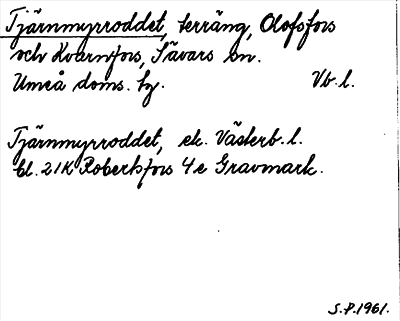 Tjärnmyrroddet, terräng, Olofsfors
och Kvarnfors, Sävars sn.
Umeå doms. hg. Vb. l.
Tjärnmyrroddet, ek. Västerb. l.
bl. 21K Robertsfors 4e Gravmark.
S.P. 1961.